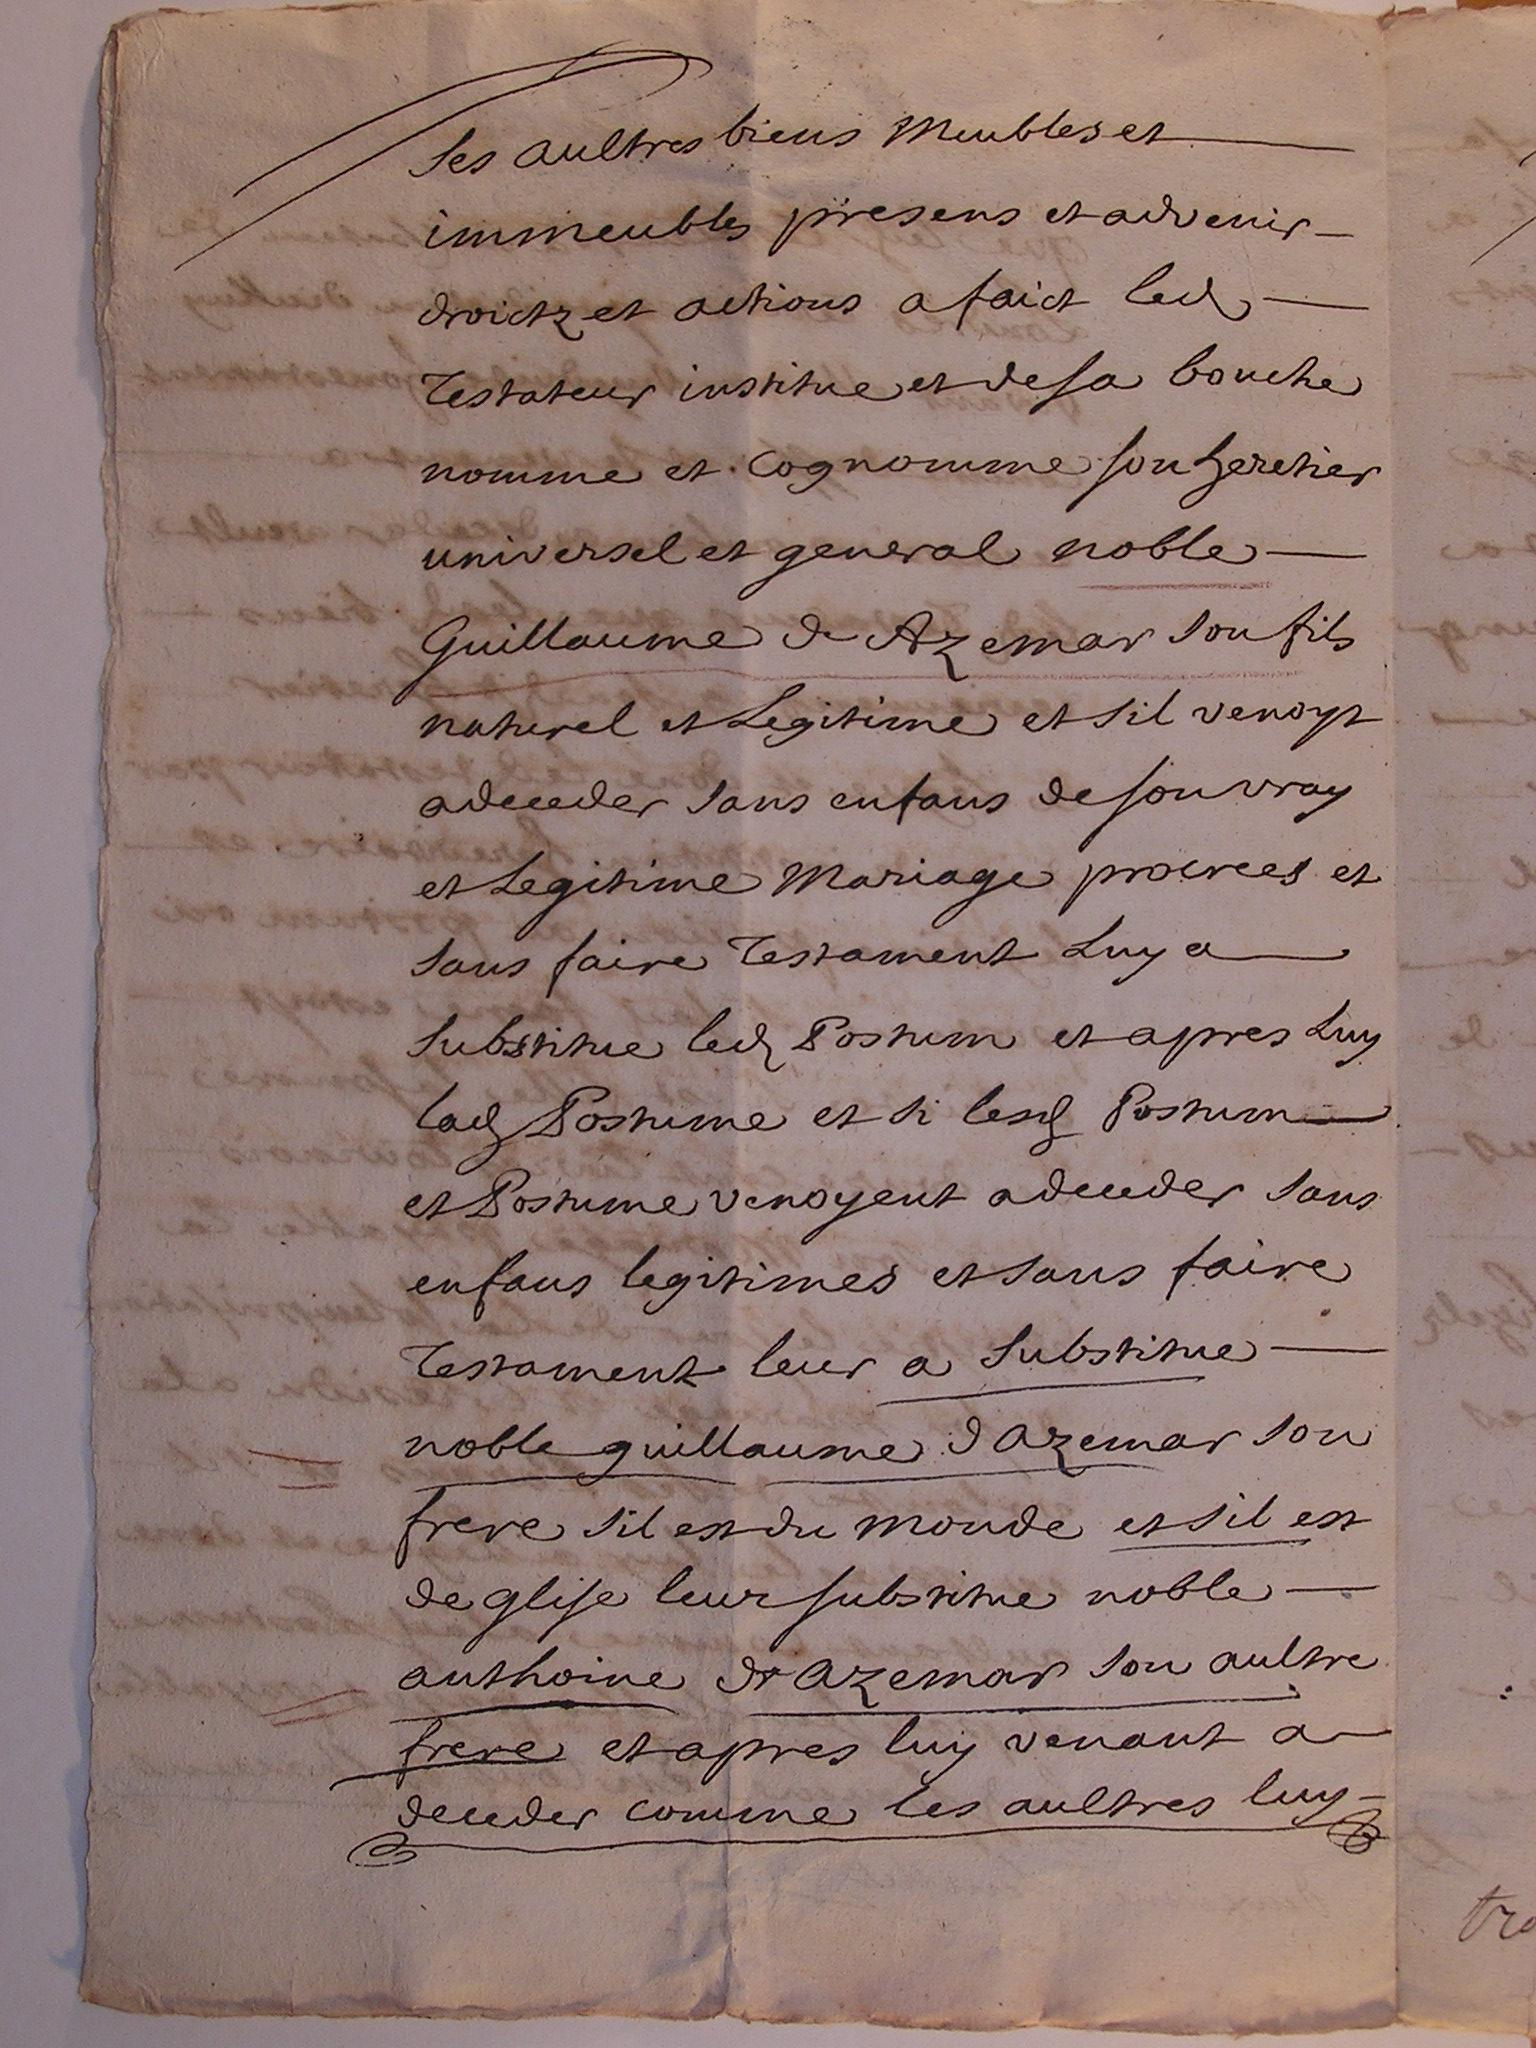 ses aultres biens meubles et
immeubles presens et advenir
droictz et actions a faict led
testateur institue et de sa bouche
nomme et cognomme son heretier
universel et general noble
Guillaume de Azemar son fils
naturel et legitime et sil venoyt
a deceder sans enfans de son vray
et legitime mariage procrees et
sans faire testament luy a
substitue led Postum et apres luy
lad Postume et si lesd Postum
et Postume venoyent a deceder sans
enfans legitimes et sans faire
testament leur a substitue
noble guillaume d azemar son
frere sil est du monde et sil est
deglise leur substitue noble
anthoine d azemar son aultre
frere et apres luy venant a
deceder comme les aultres luy